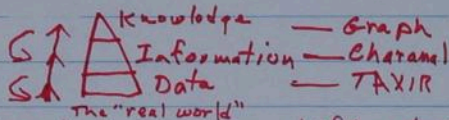 Knowledge — Graph
Information — Channel
Data — TAXIR
The "real world"